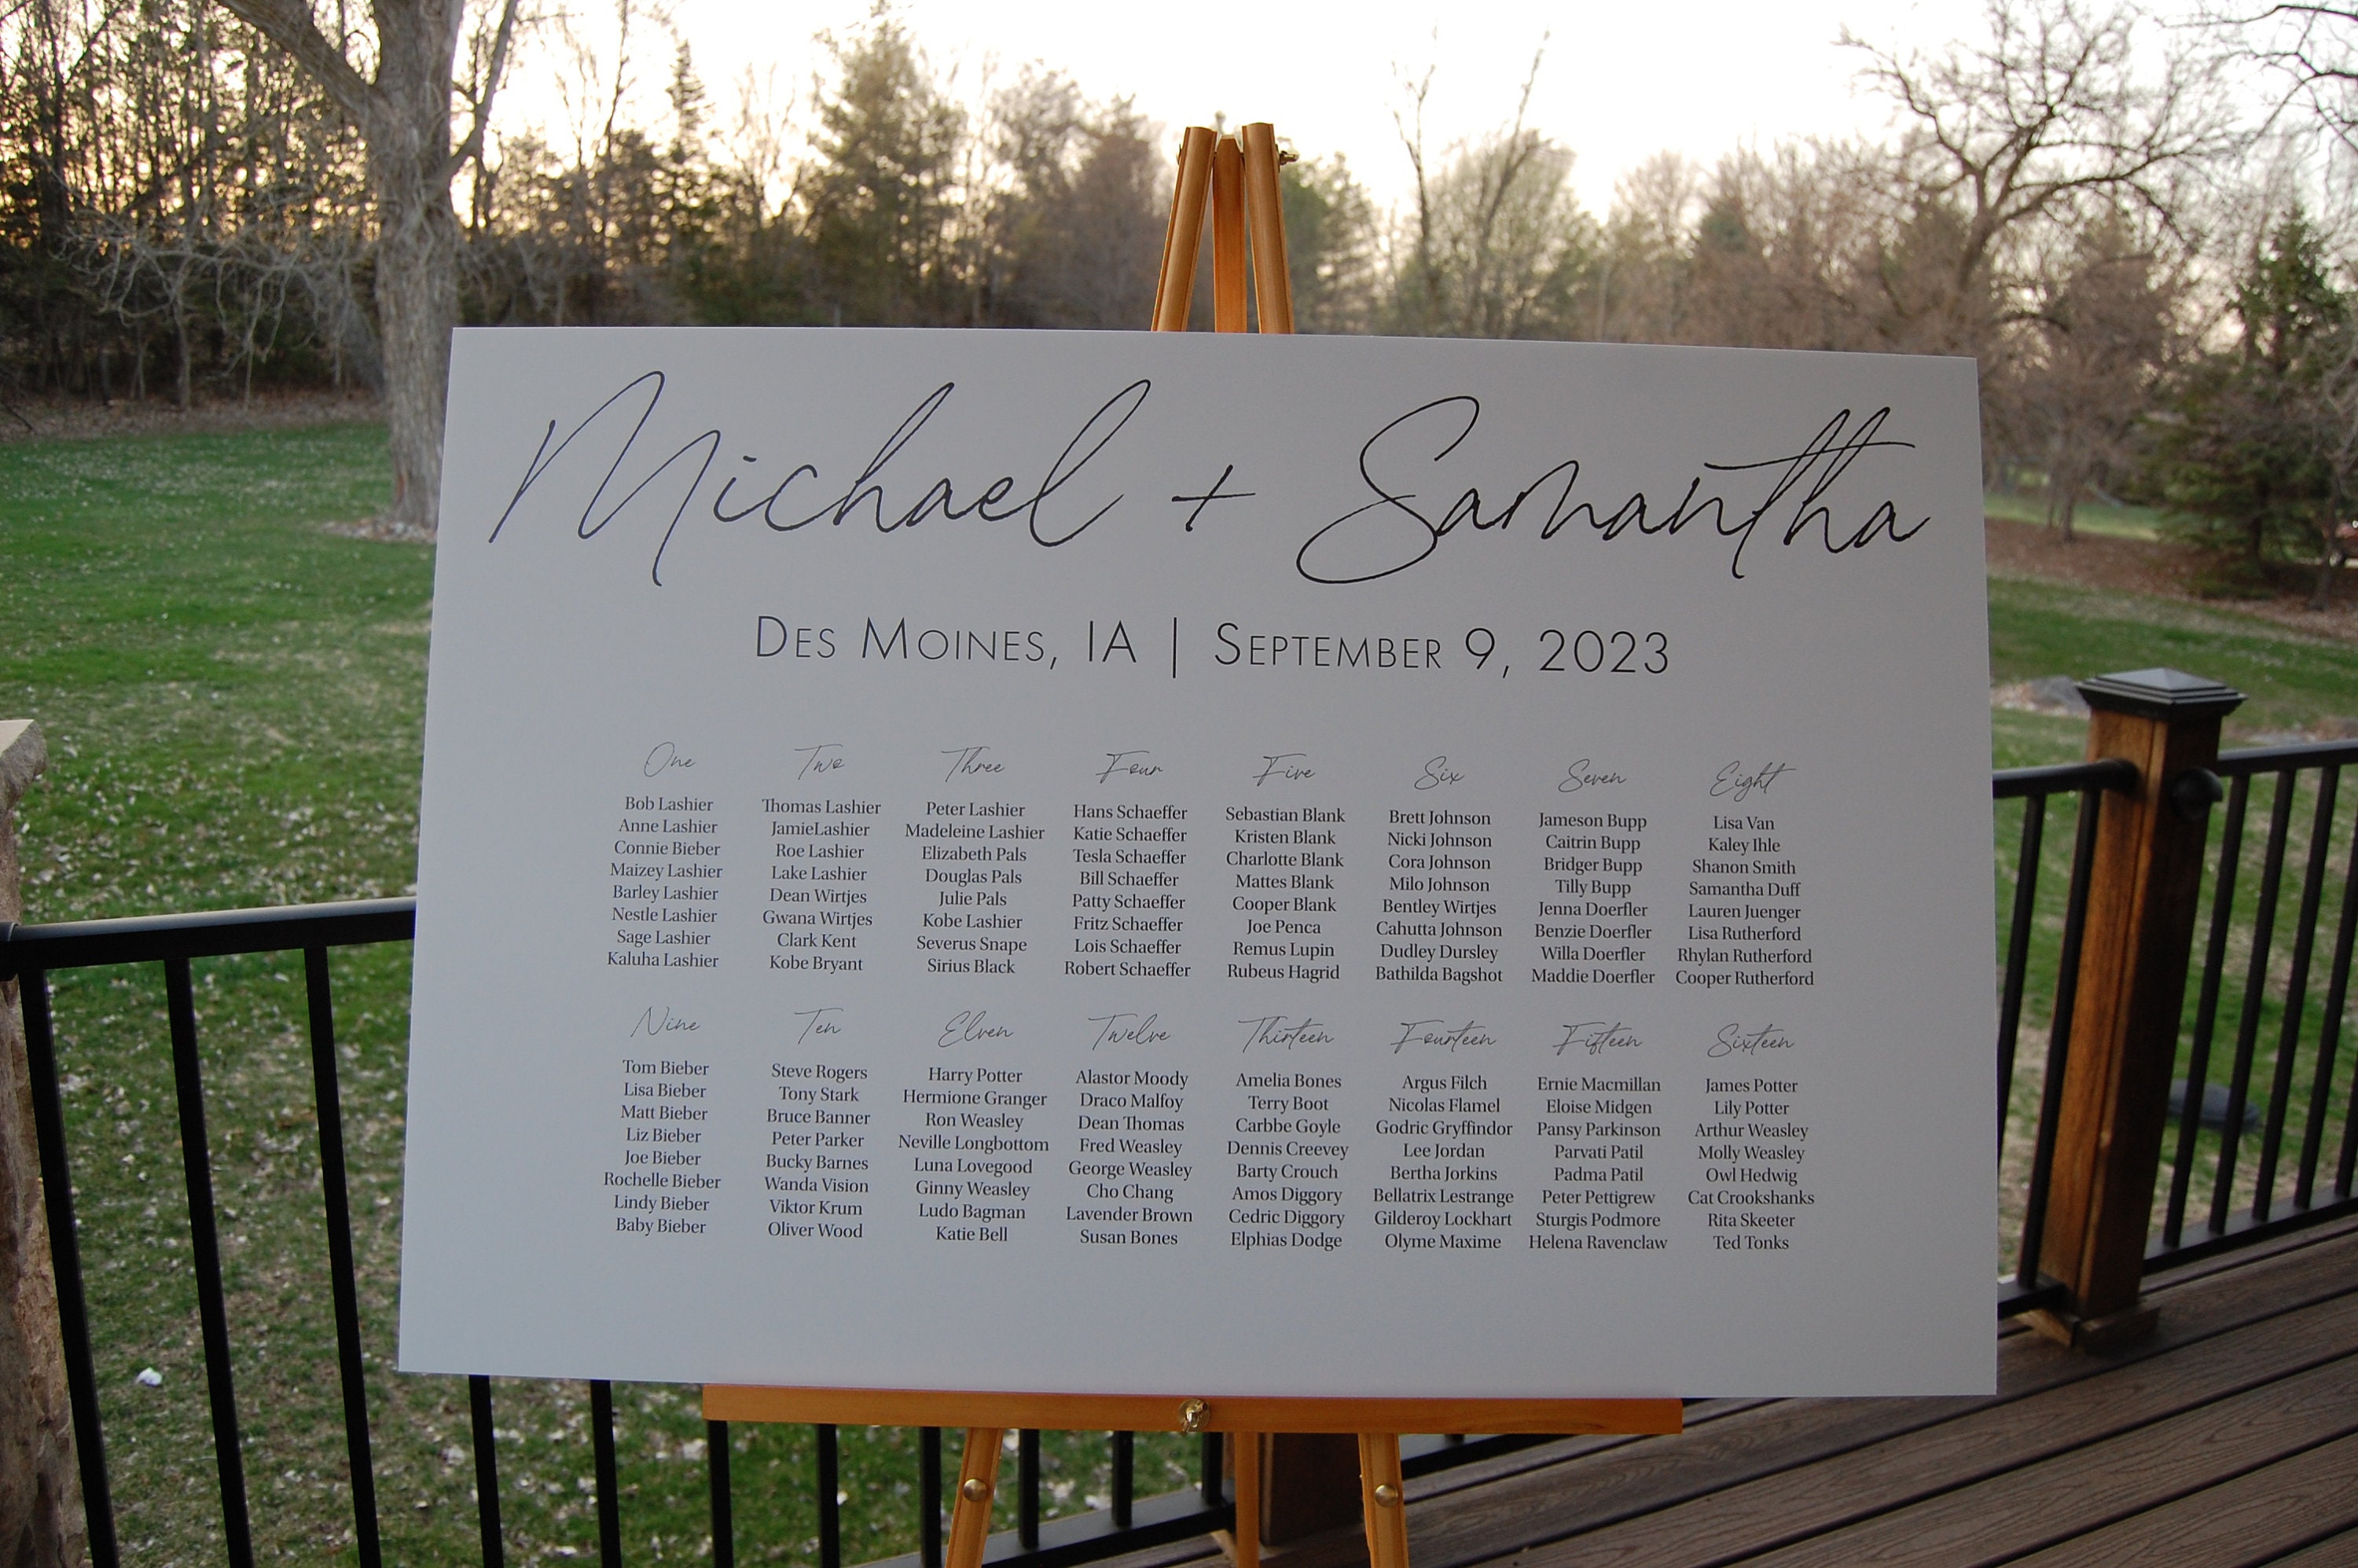 Michael + Samantha
Des Moines, IA | September 9, 2023
One
Bob Lashier
Anne Lashier
Connie Bieber
Maizey Lashier
Barley Lashier
Nestle Lashier
Sage Lashier
Kaluha Lashier
Two
Thomas Lashier
JamieLashier
Roe Lashier
Lake Lashier
Dean Wirtjes
Gwana Wirtjes
Clark Kent
Kobe Bryant
Three
Peter Lashier
Madeleine Lashier
Elizabeth Pals
Douglas Pals
Julie Pals
Kobe Lashier
Severus Snape
Sirius Black
Four
Hans Schaeffer
Katie Schaeffer
Tesla Schaeffer
Bill Schaeffer
Patty Schaeffer
Fritz Schaeffer
Lois Schaeffer
Robert Schaeffer
Five
Sebastian Blank
Kristen Blank
Charlotte Blank
Mattes Blank
Cooper Blank
Joe Penca
Remus Lupin
Rubeus Hagrid
Six
Brett Johnson
Nicki Johnson
Cora Johnson
Milo Johnson
Bentley Wirtjes
Cahutta Johnson
Dudley Dursley
Bathilda Bagshot
Seven
Jameson Bupp
Caitrin Bupp
Bridger Bupp
Tilly Bupp
Jenna Doerfler
Benzie Doerfler
Willa Doerfler
Maddie Doerfler
Eight
Lisa Van
Kaley Ihle
Shanon Smith
Samantha Duff
Lauren Juenger
Lisa Rutherford
Rhylan Rutherford
Cooper Rutherford
Nine
Tom Bieber
Lisa Bieber
Matt Bieber
Liz Bieber
Joe Bieber
Rochelle Bieber
Lindy Bieber
Baby Bieber
Ten
Steve Rogers
Tony Stark
Bruce Banner
Peter Parker
Bucky Barnes
Wanda Vision
Viktor Krum
Oliver Wood
Elven
Harry Potter
Hermione Granger
Ron Weasley
Neville Longbottom
Luna Lovegood
Ginny Weasley
Ludo Bagman
Katie Bell
Twelve
Alastor Moody
Draco Malfoy
Dean Thomas
Fred Weasley
George Weasley
Cho Chang
Lavender Brown
Susan Bones
Thirteen
Amelia Bones
Terry Boot
Carbbe Goyle
Dennis Creevey
Barty Crouch
Amos Diggory
Cedric Diggory
Elphias Dodge
Fourteen
Argus Filch
Nicolas Flamel
Godric Gryffindor
Lee Jordan
Bertha Jorkins
Bellatrix Lestrange
Gilderoy Lockhart
Olyme Maxime
Fifteen
Ernie Macmillan
Eloise Midgen
Pansy Parkinson
Parvati Patil
Padma Patil
Peter Pettigrew
Sturgis Podmore
Helena Ravenclaw
Sixteen
James Potter
Lily Potter
Arthur Weasley
Molly Weasley
Owl Hedwig
Cat Crookshanks
Rita Skeeter
Ted Tonks